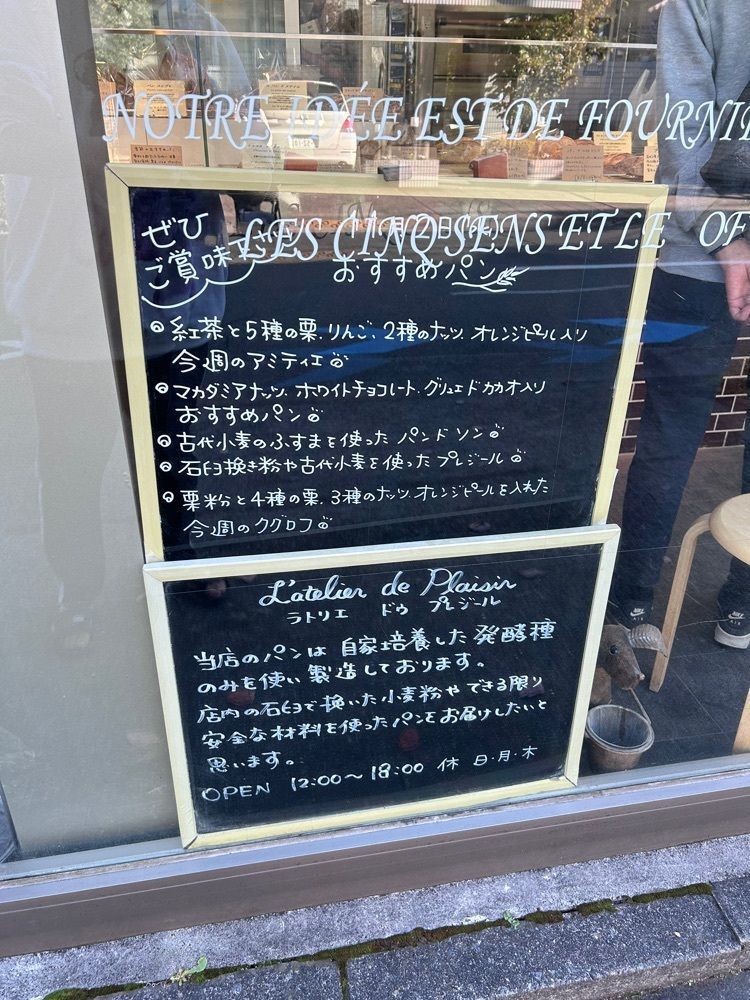 NOTRE IDÉE EST DE FOURNI
LES CINQ SENS ET LE OF
ぜひ
ご賞味下さい
おすすめパン
紅茶と5種の栗、りんご、2種のナッツ、オレンジピール入り
今週のアミティエ
マカダミアナッツ、ホワイトチョコレート、グリュエドカカオ入り
おすすめパン
古代小麦のふすまを使った パンドソン
石臼挽き粉や古代小麦を使ったプレジール
栗粉と4種の栗、3種のナッツ、オレンジピールを入れた
今週のクグロフ
L'atelier de Plaisir
ラトリエ ドゥ プレジール
当店のパンは自家培養した発酵種
のみを使い製造しております。
店内の石臼で挽いた小麦粉やできる限り
安全な材料を使ったパンをお届けしたいと
思います。
OPEN 12:00〜18:00 休 日・月・木